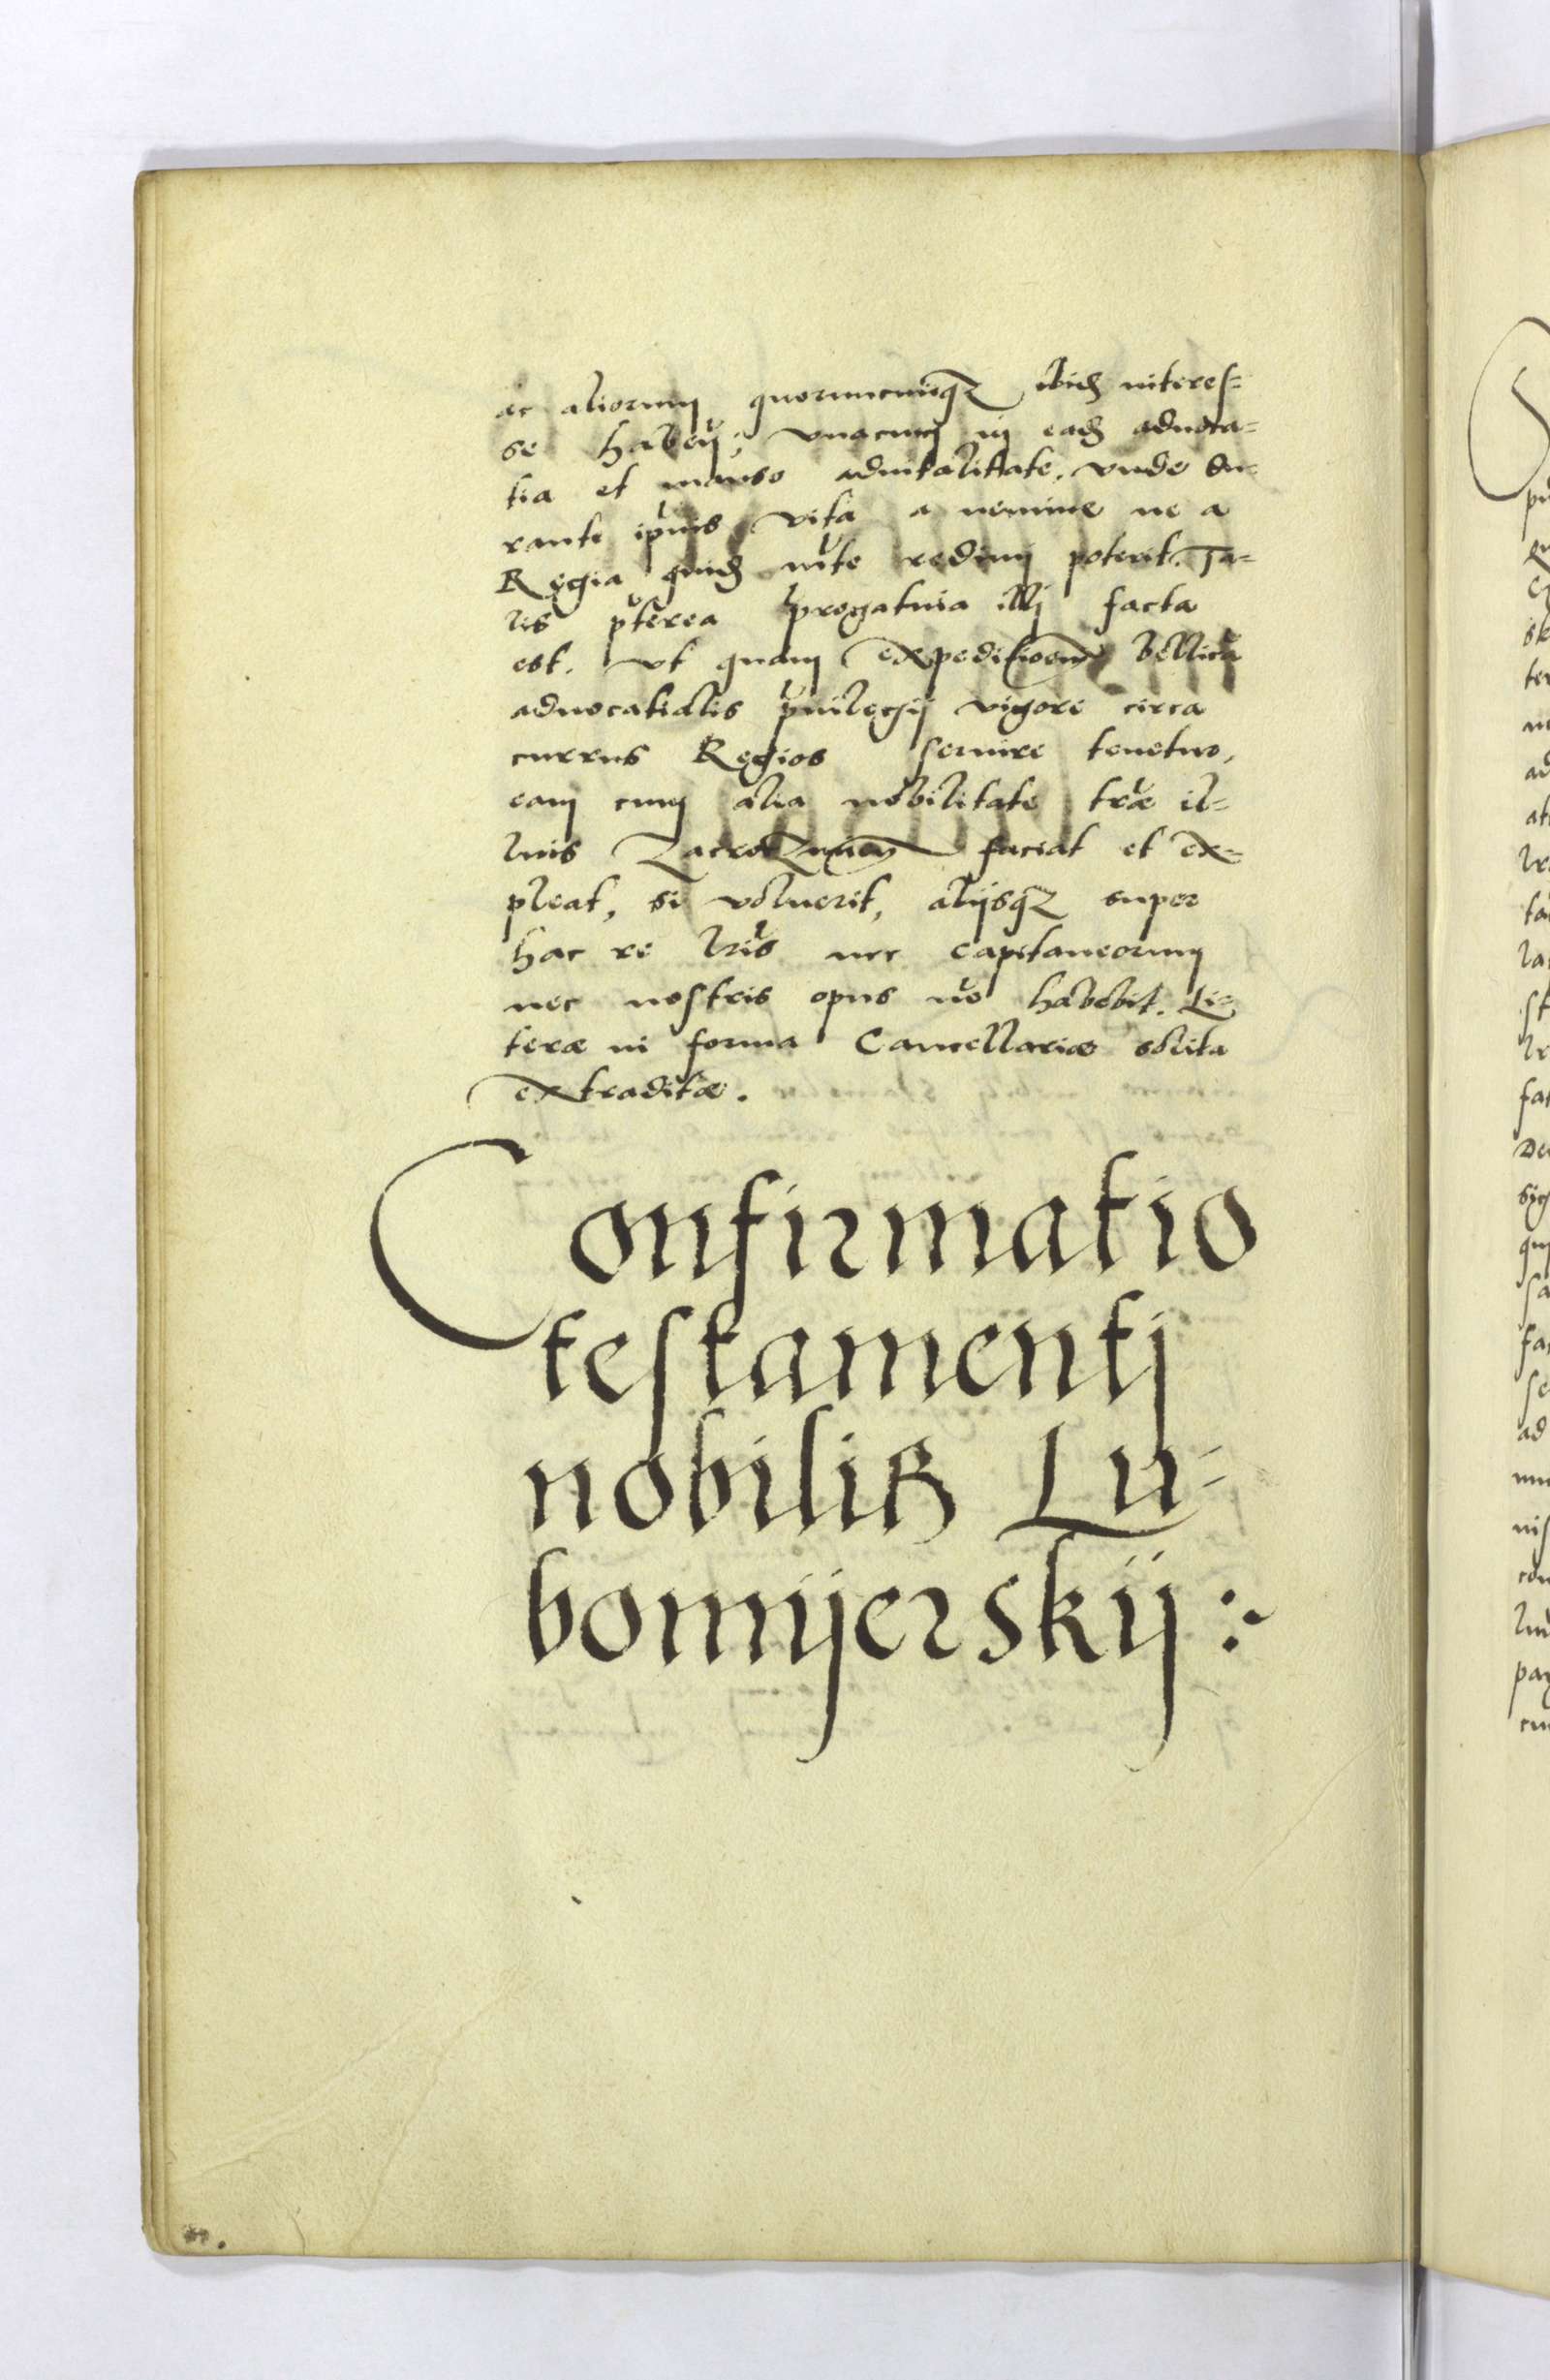 ac aliorum quorumcunqꝫ ibidꝫ interes=
se haben̄; vnacum in eadꝫ aduoca=
tia et manso aduitalitate, vnde du=
rante ip̄ius vita a nemine ne a
Regia quidꝫ mte redimj poterit. Ta=
lis p̄terea p̄rogatiuia illj facta
est. vt quam expeditioem̄ bellicā
aduocatialis p̄uilegij vigore circa
currus Regios seruire tenetur,
eam cum alia nobilitate tr̄æ il=
lius Zacroczimen̄ faciat et ex=
pleat, si voluerit, alijsqꝫ super
hac re lr̄is nec capitaneorum
nec nostris opus nō habebit. Li=
teræ in forma Cancellariæ solita
extraditæ.
Confirmatio
testamentj
nobiliß Lu=
bomijerskij :~